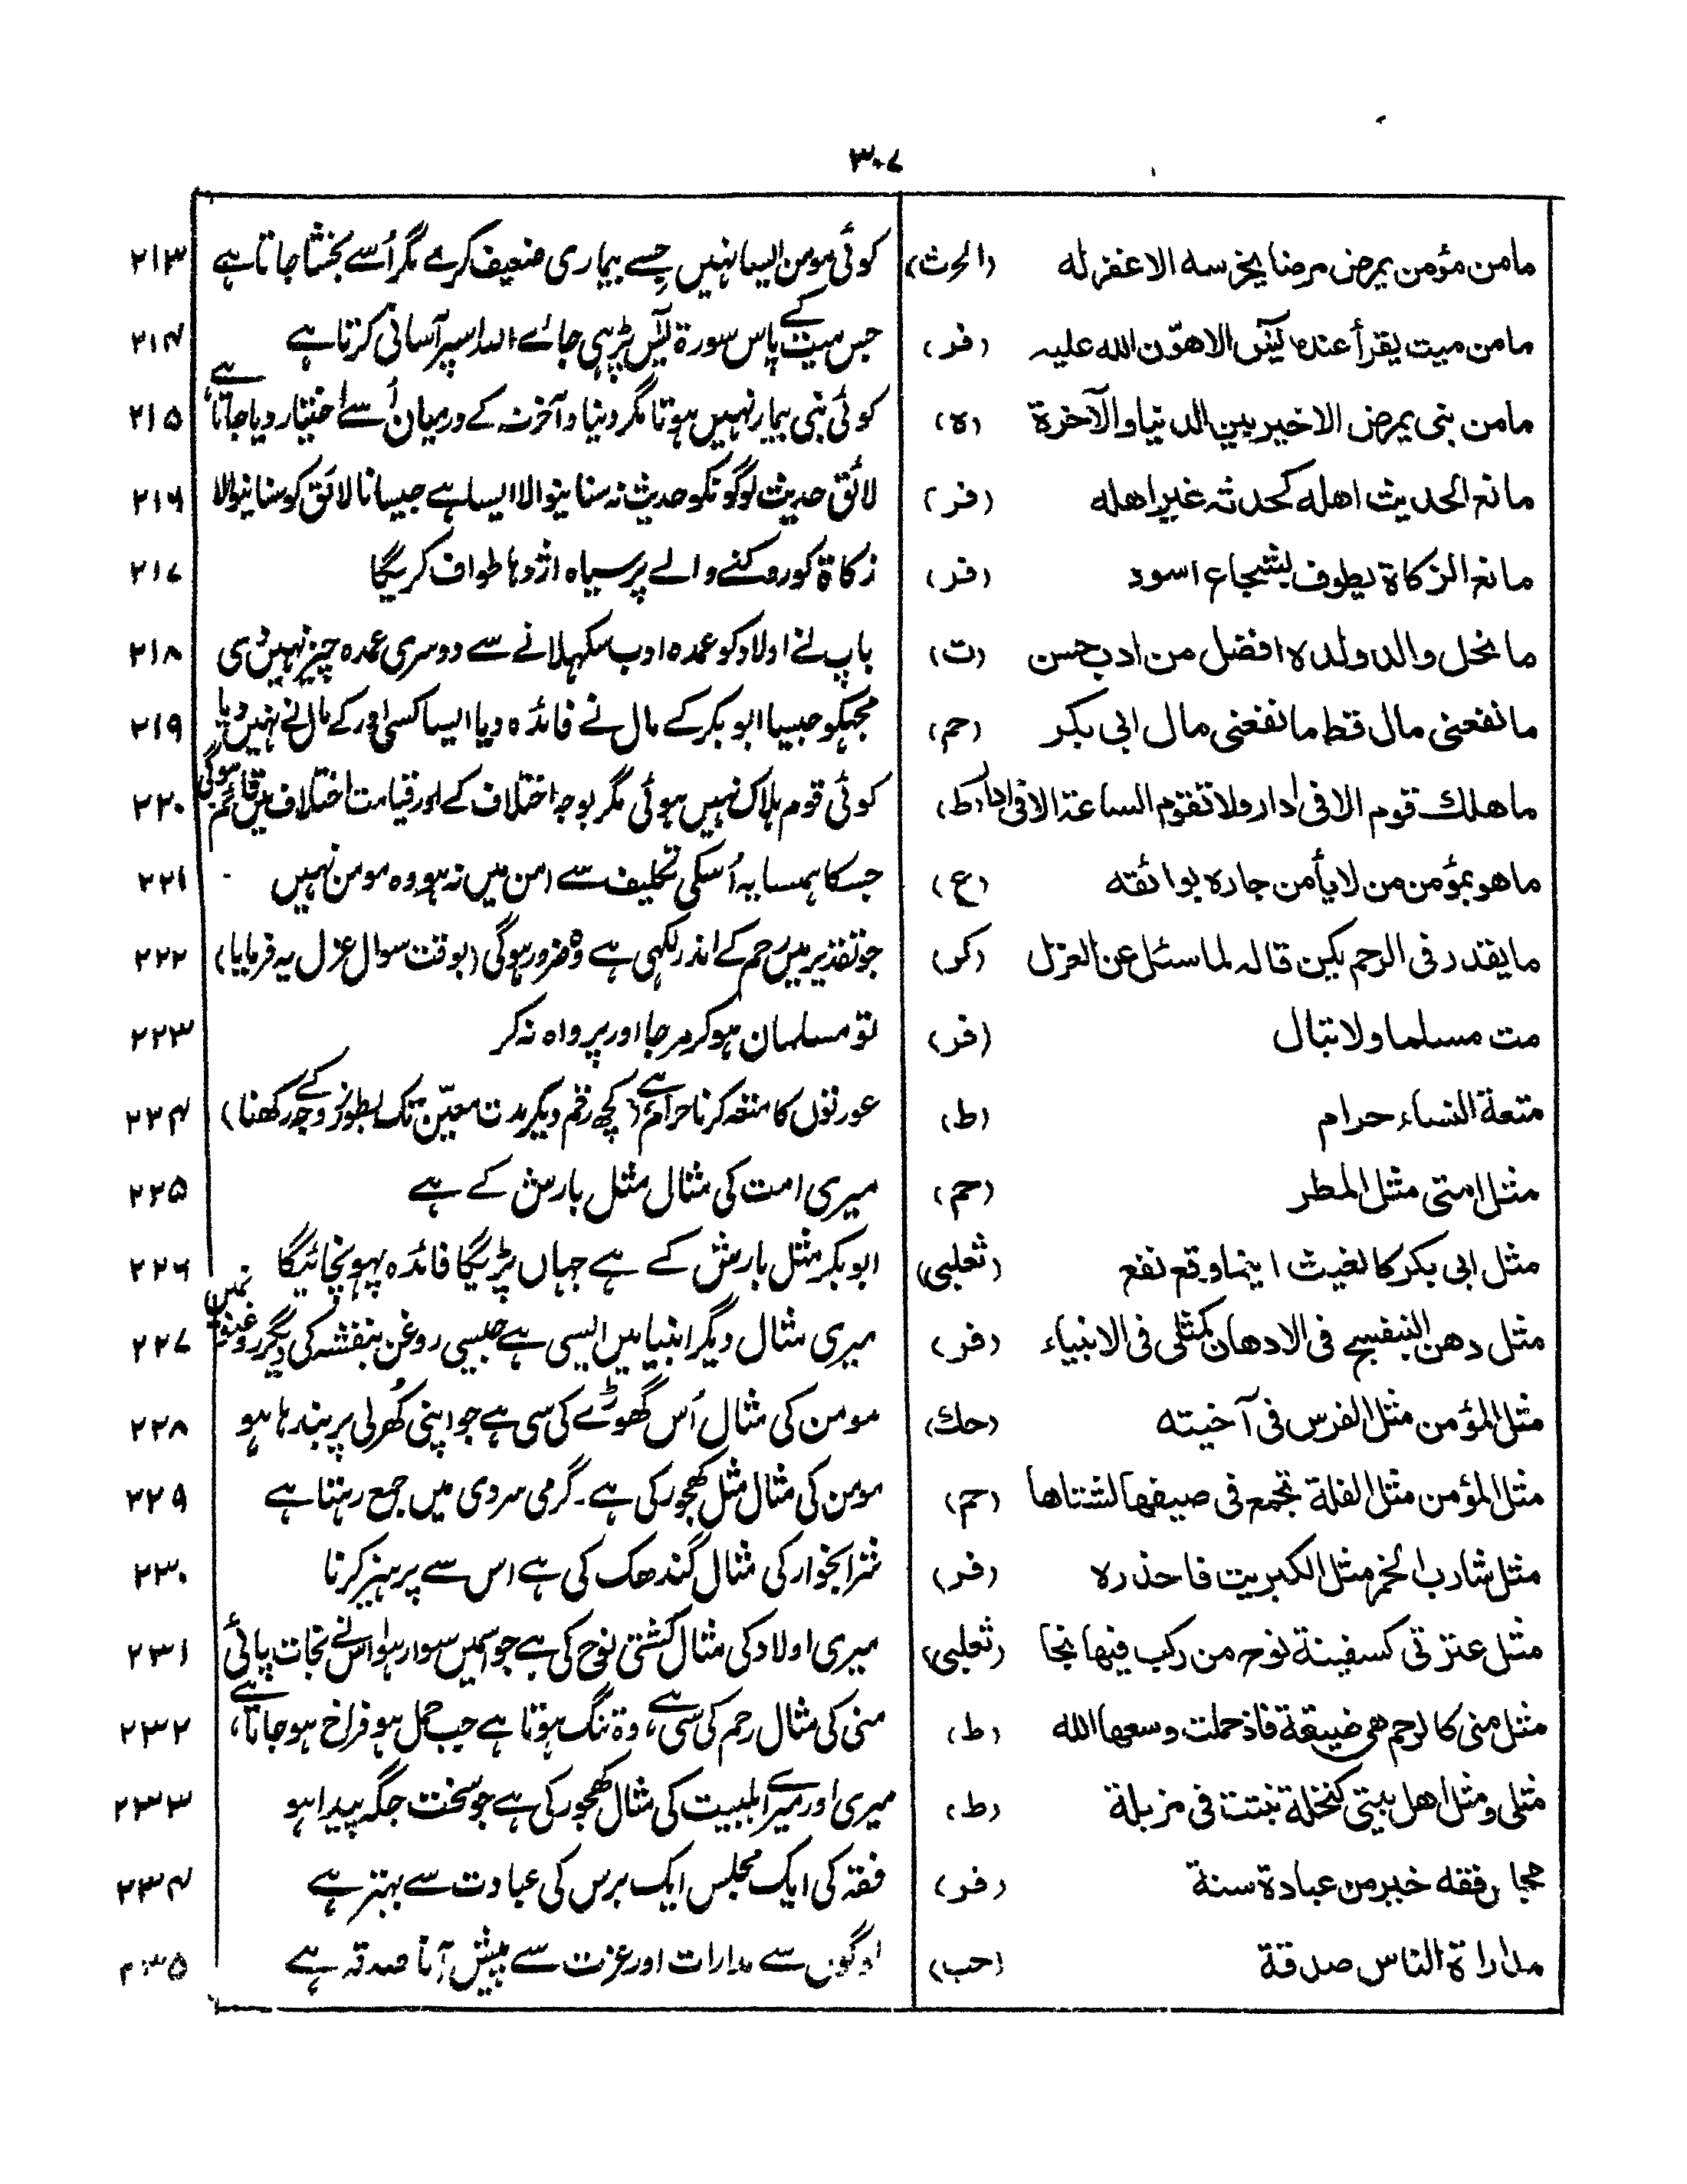 ۳۰۷
مامن مؤمن یمرض مرضا یخرسه الا غفر له (الحرث) کوئی مومن ایسا نہیں جسے بیماری ضعیف کرے مگر اُسے بخشا جاتا ہے ۲۱۳
مامن میت یقرأ عنده یٰسٓ الا هوّن الله علیه (فر) جس میت کے پاس سورۃ یٰسٓ پڑہی جائے اللہ اسپر آسانی کرتا ہے ۲۱۴
مامن نبی یمرض الا خیر بین الدنیا والآخرة (ہ) کوئی نبی بیمار نہیں ہوتا مگر دنیا و آخرت کے درمیان اُسے اختیار دیا جاتا ہے ۲۱۵
مانع الحدیث اهله کمحدثه غیر اهله (فر) لائق حدیث لوگونکو حدیث نہ سنانیوالا ایسا ہے جیسا نالائق کو سنانیوالا ۲۱۶
مانع الزکاة یطوف بشجاع اسود (فر) زکاۃ کو روکنے والے پر سیاہ اژدہا طواف کریگا ۲۱۷
مانحل والد ولده افضل من ادب حسن (ت) باپ نے اولاد کو عمدہ ادب سکہلانے سے دوسری عمدہ چیز نہیں دی ۲۱۸
مانفعنی مال قط مانفعنی مال ابی بکر (حم) مجہکو جیسا ابو بکر کے مال نے فائدہ دیا ایسا کسی اور کے مال نے نہیں دیا ۲۱۹
ماهلك قوم الا فی ادار ولا تقوم الساعة الا فی ادار (ط) کوئی قوم ہلاک نہیں ہوئی مگر بوجہ اختلاف کے اور قیامت اختلاف میں قائم ہوگی ۲۲۰
ماهو بمؤمن من لا یأمن جاره بوائقه (ع) جسکا ہمسایہ اُسکی تکلیف سے امن میں نہ ہو وہ مومن نہیں ۲۲۱
مایقدر فی الرحم یکن قاله لما سئل عن العزل (کر) جو تقدیر میں رحم کے اندر لکہی ہے وہ ضرور ہوگی (بوقت سوال عزل یہ فرمایا) ۲۲۲
مت مسلما ولا تبال (فر) تو مسلمان ہو کر مر جا اور پرواہ نہ کر ۲۲۳
متعة النساء حرام (ط) عورتوں کا متعہ کرنا حرام ہے (کچھ رقم دیکر مدت معیّن تک بطور زوجہ کے رکھنا) ۲۲۴
مثل امتی مثل المطر (حم) میری امت کی مثال مثل بارش کے ہے ۲۲۵
مثل ابی بکر کالغیث اینما وقع نفع (ثعلبی) ابو بکر مثل بارش کے ہے جہاں پڑیگا فائدہ پہونچائیگا ۲۲۶
مثل دهن البنفسج فی الادهان کمثلی فی الانبیاء (فر) میری مثال دیگر انبیا میں ایسی ہے جیسی روغن بنفشہ کی دیگر روغنوں میں ۲۲۷
مثل المؤمن مثل الفرس فی آخیته (حك) مومن کی مثال اُس گھوڑے کی سی ہے جو اپنی کُھرلی پر بندہا ہو ۲۲۸
مثل المؤمن مثل النملة تجمع فی صیفها لشتاها (حم) مومن کی مثال مثل کھجور کی ہے۔ گرمی سردی میں جمع رہتا ہے ۲۲۹
مثل شارب الخمر مثل الکبریت فاحذره (فر) شرابخوار کی مثال گندھک کی ہے اس سے پرہیز کرنا ۲۳۰
مثل عترتی کسفینة نوح من رکب فیها نجا (ثعلبی) میری اولاد کی مثال کشتی نوح کی ہے جو اسمیں سوار ہوا اس نے نجات پائی ۲۳۱
مثل منی کالرحم هی ضیقة فاذحملت وسعها الله (ط) منی کی مثال رحم کی سی ہے، وہ تنگ ہوتا ہے جب حمل ہو فراخ ہو جاتا ہے، ۲۳۲
مثلی ومثل اهل بیتی کنخلة نبتت فی مزبلة (ط) میری اور میرے اہلبیت کی مثال کھجور کی ہے جو سخت جگہ پیدا ہو ۲۳۳
فقه خیر من عبادة سنة (فر) فقہ کی ایک مجلس ایک برس کی عبادت سے بہتر ہے ۲۳۴
مداراة الناس صدقة (حب) لوگوں سے مدارات اور عزت سے پیش آنا صدقہ ہے ۲۳۵